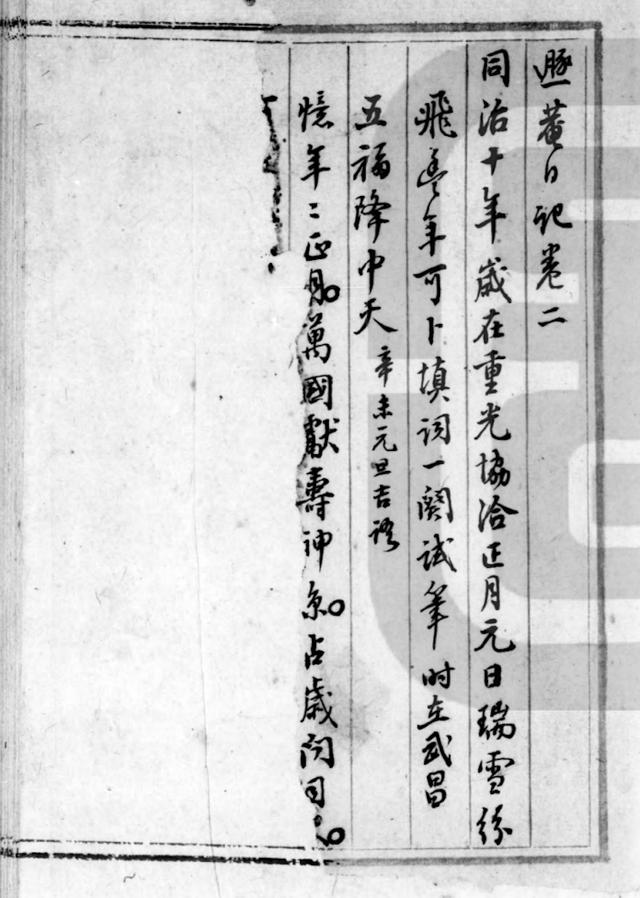 遯菴日記卷二
同治十年歲在重光協洽正月元日瑞雪紛
飛豐年可卜填詞一闋試筆時在武昌
五福降中天 辛未元旦吉語
憶年二正月。萬國獻壽神京。占歲問